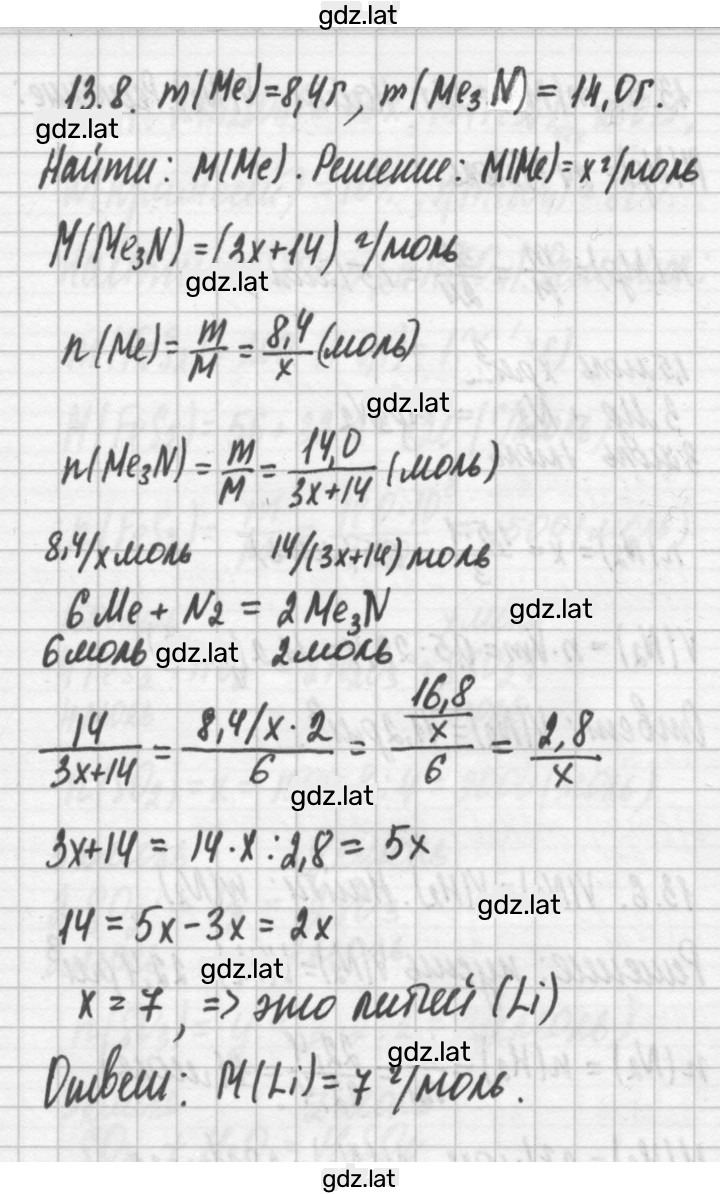 gdz.lat
13.8. m(Me)=8,4г, m(Me₃N) = 14,0г.
gdz.lat
Найти: M(Me). Решение: M(Me)= x г/моль
M(Me₃N) = (3x+14) г/моль
gdz.lat
n(Me)= m/M = 8,4/x (моль)
gdz.lat
n(Me₃N) = m/M = 14,0/(3x+14) (моль)
8,4/x моль 14/(3x+14) моль
6Me + N₂ = 2Me₃N gdz.lat
6 моль gdz.lat 2 моль
14/(3x+14) = (8,4/x · 2)/6 = (16,8/x)/6 = 2,8/x
gdz.lat
3x+14 = 14·x:2,8 = 5x
gdz.lat
14 = 5x-3x = 2x
gdz.lat
x = 7, => это литий (Li)
gdz.lat
Ответ: M(Li)= 7 г/моль.
gdz.lat